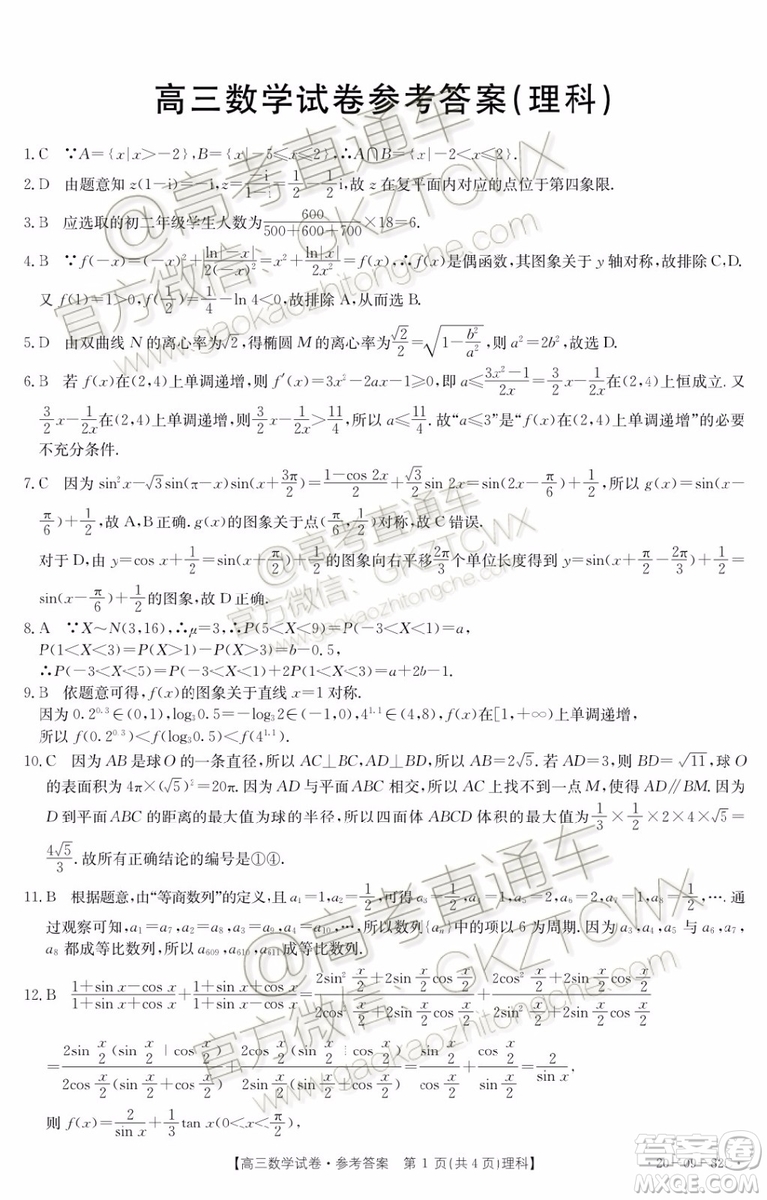 高三数学试卷参考答案(理科)
1. C ∵A={x|x>-2},B={x|-5≤x≤2},∴A∩B={x|-2<x≤2}.
2. D 由题意知z(1-i)=-i,z=-i/(1-i)=1/2-1/2i,故z在复平面内对应的点位于第四象限.
3. B 应选取的初二年级学生人数为600/(500+600+700)×18=6.
4. B ∵f(-x)=(-x)²+ln|-x|/2(-x)²=x²+ln|x|/2x²=f(x),∴f(x)是偶函数,其图象关于y轴对称,故排除C,D.
又f(1)=1>0,f(1/2)=1/4-ln 4<0,故排除A,从而选B.
5. D 由双曲线N的离心率为√2,得椭圆M的离心率为√2/2=√(1-b²/a²),则a²=2b².
6. B 若f(x)在(2,4)上单调递增,则f′(x)=3x²-2ax-1≥0,即a≤(3x²-1)/2x在(2,4)上恒成立.又
3/2x-1/2x在(2,4)上单调递增,则3/2x-1/2x>11/4,所以a≤11/4.故“a≤3”是“f(x)在(2,4)上单调递增”的必要
不充分条件.
7. C 因为sin²x-√3sin(π-x)sin(x+3π/2)=(1-cos 2x)/2+√3/2sin 2x=sin(2x-π/6)+1/2,所以g(x)=sin(x-
π/6)+1/2,故A,B正确.g(x)的图象关于点(π/6,1/2)对称,故C错误.
对于D,由y=cos x+1/2=sin(x+π/2)+1/2的图象向右平移2π/3个单位长度得到y=sin(x+π/2-2π/3)+1/2=
sin(x-π/6)+1/2,故D正确.
8. A ∵X~N(3,16),∴μ=3,∴P(5<X<9)=P(-3<X<1)=a,
P(1<X<3)=P(X>1)-P(X>3)=b-1/2,
∴P(-3<X<5)=P(-3<X<1)+2P(1<X<3)=a+2b-1.
9. B 依题意可得,f(x)的图象关于直线x=1对称.
因为0.2^0.3∈(0,1),log₃0.5=-log₃2∈(-1,0),4^1.1∈(4,8),f(x)在[1,+∞)上单调递增,
所以f(0.2^0.3)<f(log₃0.5)<f(4^1.1).
10. C 因为AB是球O的一条直径,所以AC⊥BC,AD⊥BD,所以AB=2√5.若AD=3,则BD=√11,球O
的表面积为4π×(√5)²=20π.因为AD与平面ABC相交,所以找不到一点M,使得AD∥BM.
D到平面ABC的距离的最大值为球的半径,所以四面体ABCD体积的最大值为1/3×1/2×2×4×√5=
4√5/3.故所有正确结论的编号是①④.
11. B 根据题意,由“等商数列”的定义,且a₁=1,a₂=1/2,可得a₃=1/2,a₄=1,a₅=2,a₆=2,a₇=1,a₈=1/2,….通
过观察可知,a₁=a₇,a₂=a₈,a₃=a₉,a₄=a₁₀,…,所以数列{aₙ}中的项以6为周期.因为a₅与a₆,a₇与
a₈都成等比数列,所以a₆₀₉,a₆₁₀,a₆₁₁成等比数列.
12. B (1+sin x-cos x)/(1+sin x+cos x)+(1+sin x+cos x)/(1+sin x-cos x)=(2sin²x/2+2sin x/2cos x/2)/(2cos²x/2+2sin x/2cos x/2)+(2cos²x/2+2sin x/2cos x/2)/(2sin²x/2+2sin x/2cos x/2)
=2sin x/2(sin x/2+cos x/2)/2cos x/2(sin x/2+cos x/2)+2cos x/2(sin x/2+cos x/2)/2sin x/2(sin x/2+cos x/2)=(sin x/2)/(cos x/2)+(cos x/2)/(sin x/2)=2/sin x,
则f(x)=2/sin x+1/3tan x(0<x<π/2),
【高三数学试卷·参考答案 第1页(共4页)理科】
@高考直通车
官方微信:GKZTCWX
www.gaokaozhitongche.com
答案圈
MXQE.COM